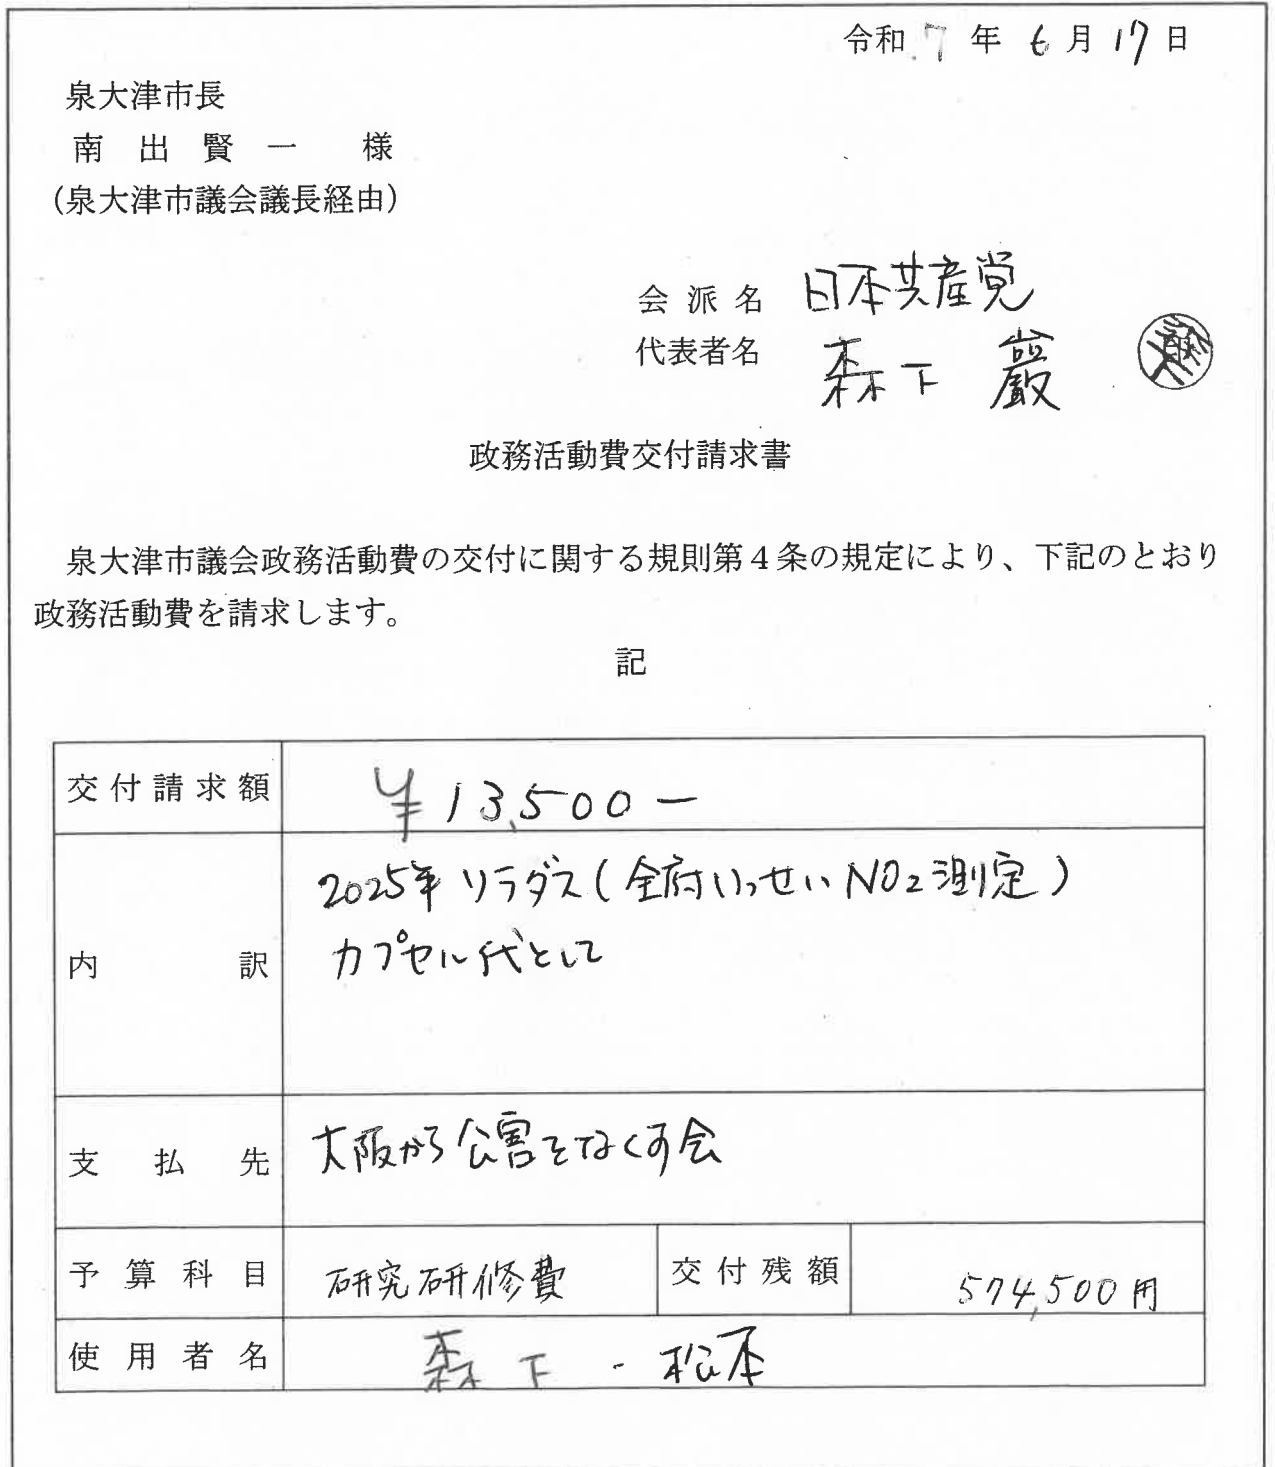 令和 7 年 6 月 17 日
泉大津市長
南 出 賢 一 様
（泉大津市議会議長経由）
会 派 名 日本共産党
代表者名 森下 巖
政務活動費交付請求書
泉大津市議会政務活動費の交付に関する規則第４条の規定により、下記のとおり
政務活動費を請求します。
記
交付請求額 ¥13,500－
内訳 2025年 ソラダス(全府いっせいNO2測定)
カプセル代として
支払先 大阪から公害をなくす会
予算科目 研究研修費 交付残額 574,500円
使用者名 森下・松本